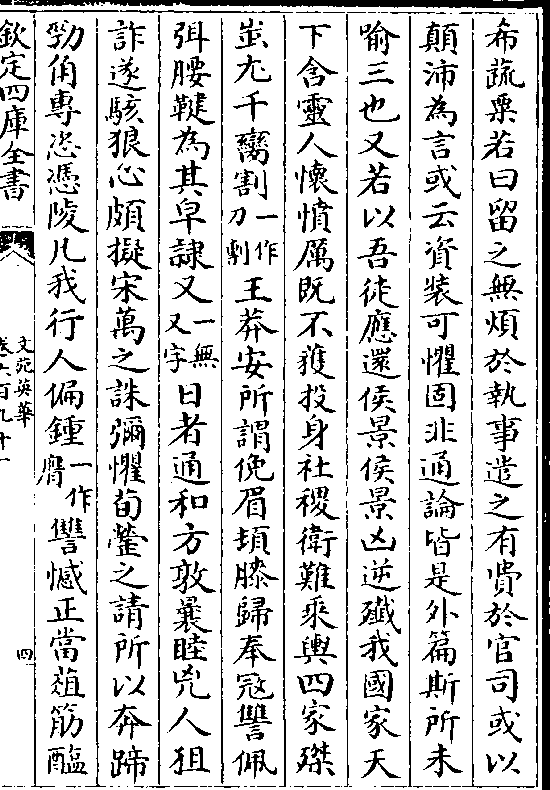 希蔬粟若曰留之無煩於執事遣之有費於官司或以
顛沛為言或云資装可懼固非通論皆是外篇斯所未
喻三也又若以吾徒應還侯景侯景凶逆殲我國家天
下含靈人懐憤厲既不獲投身社稷衛難乗輿四家磔
蚩尤千𠜂割一作刀剸王莽安所謂俛眉頓膝歸奉冦讐佩
弭腰鞬為其皁隷又一無又字日者通和方敦曩睦兇人狙
詐遂駭狼心頗擬宋萬之誅彌懼荀罃之請所以奔蹄
勁角專恣憑陵凡我行人偏鍾一作膺讐憾正當葅筋醢
欽定四庫全書
文苑英華
卷六百九十一
四